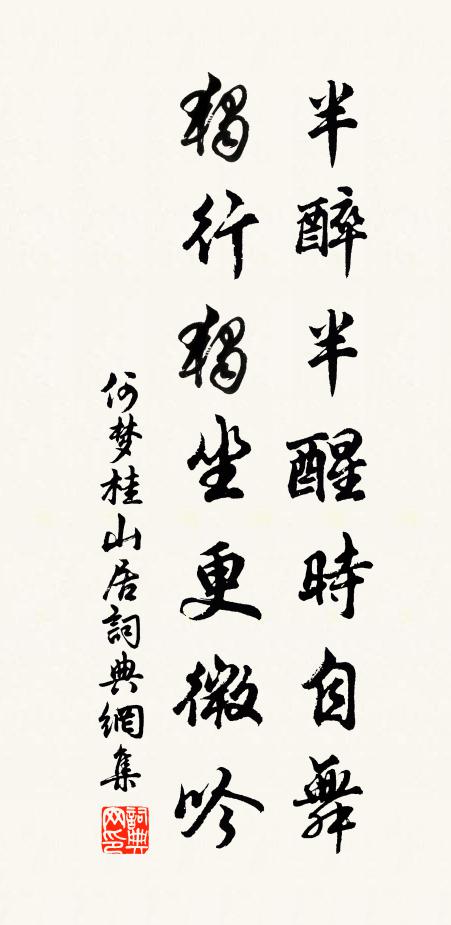 半醉半醒時自舞
獨行獨坐更微吟
何梦桂山居詞典網集
詞典
网印